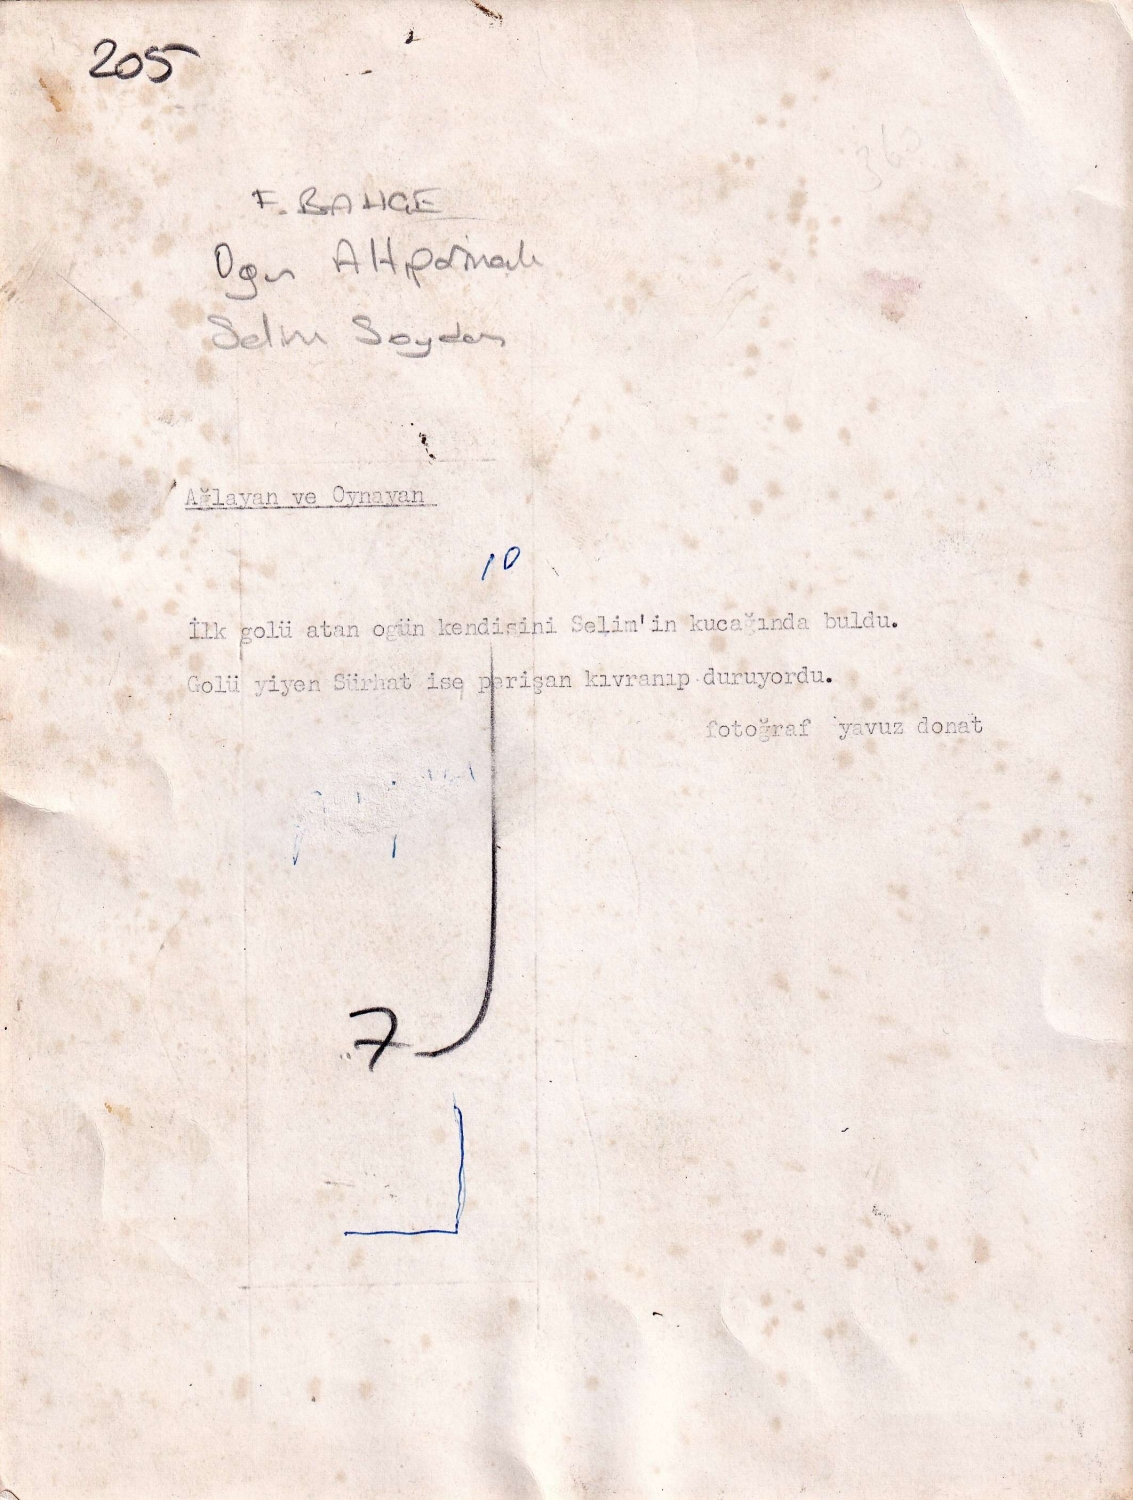 205
F. BAHÇE
Ogün Altıparmak
Selim Soydan
Ağlayan ve Oynayan
10
İlk golü atan ogün kendisini Selim'in kucağında buldu.
Golü yiyen Sürhat ise perişan kıvranıp duruyordu.
fotoğraf yavuz donat
7